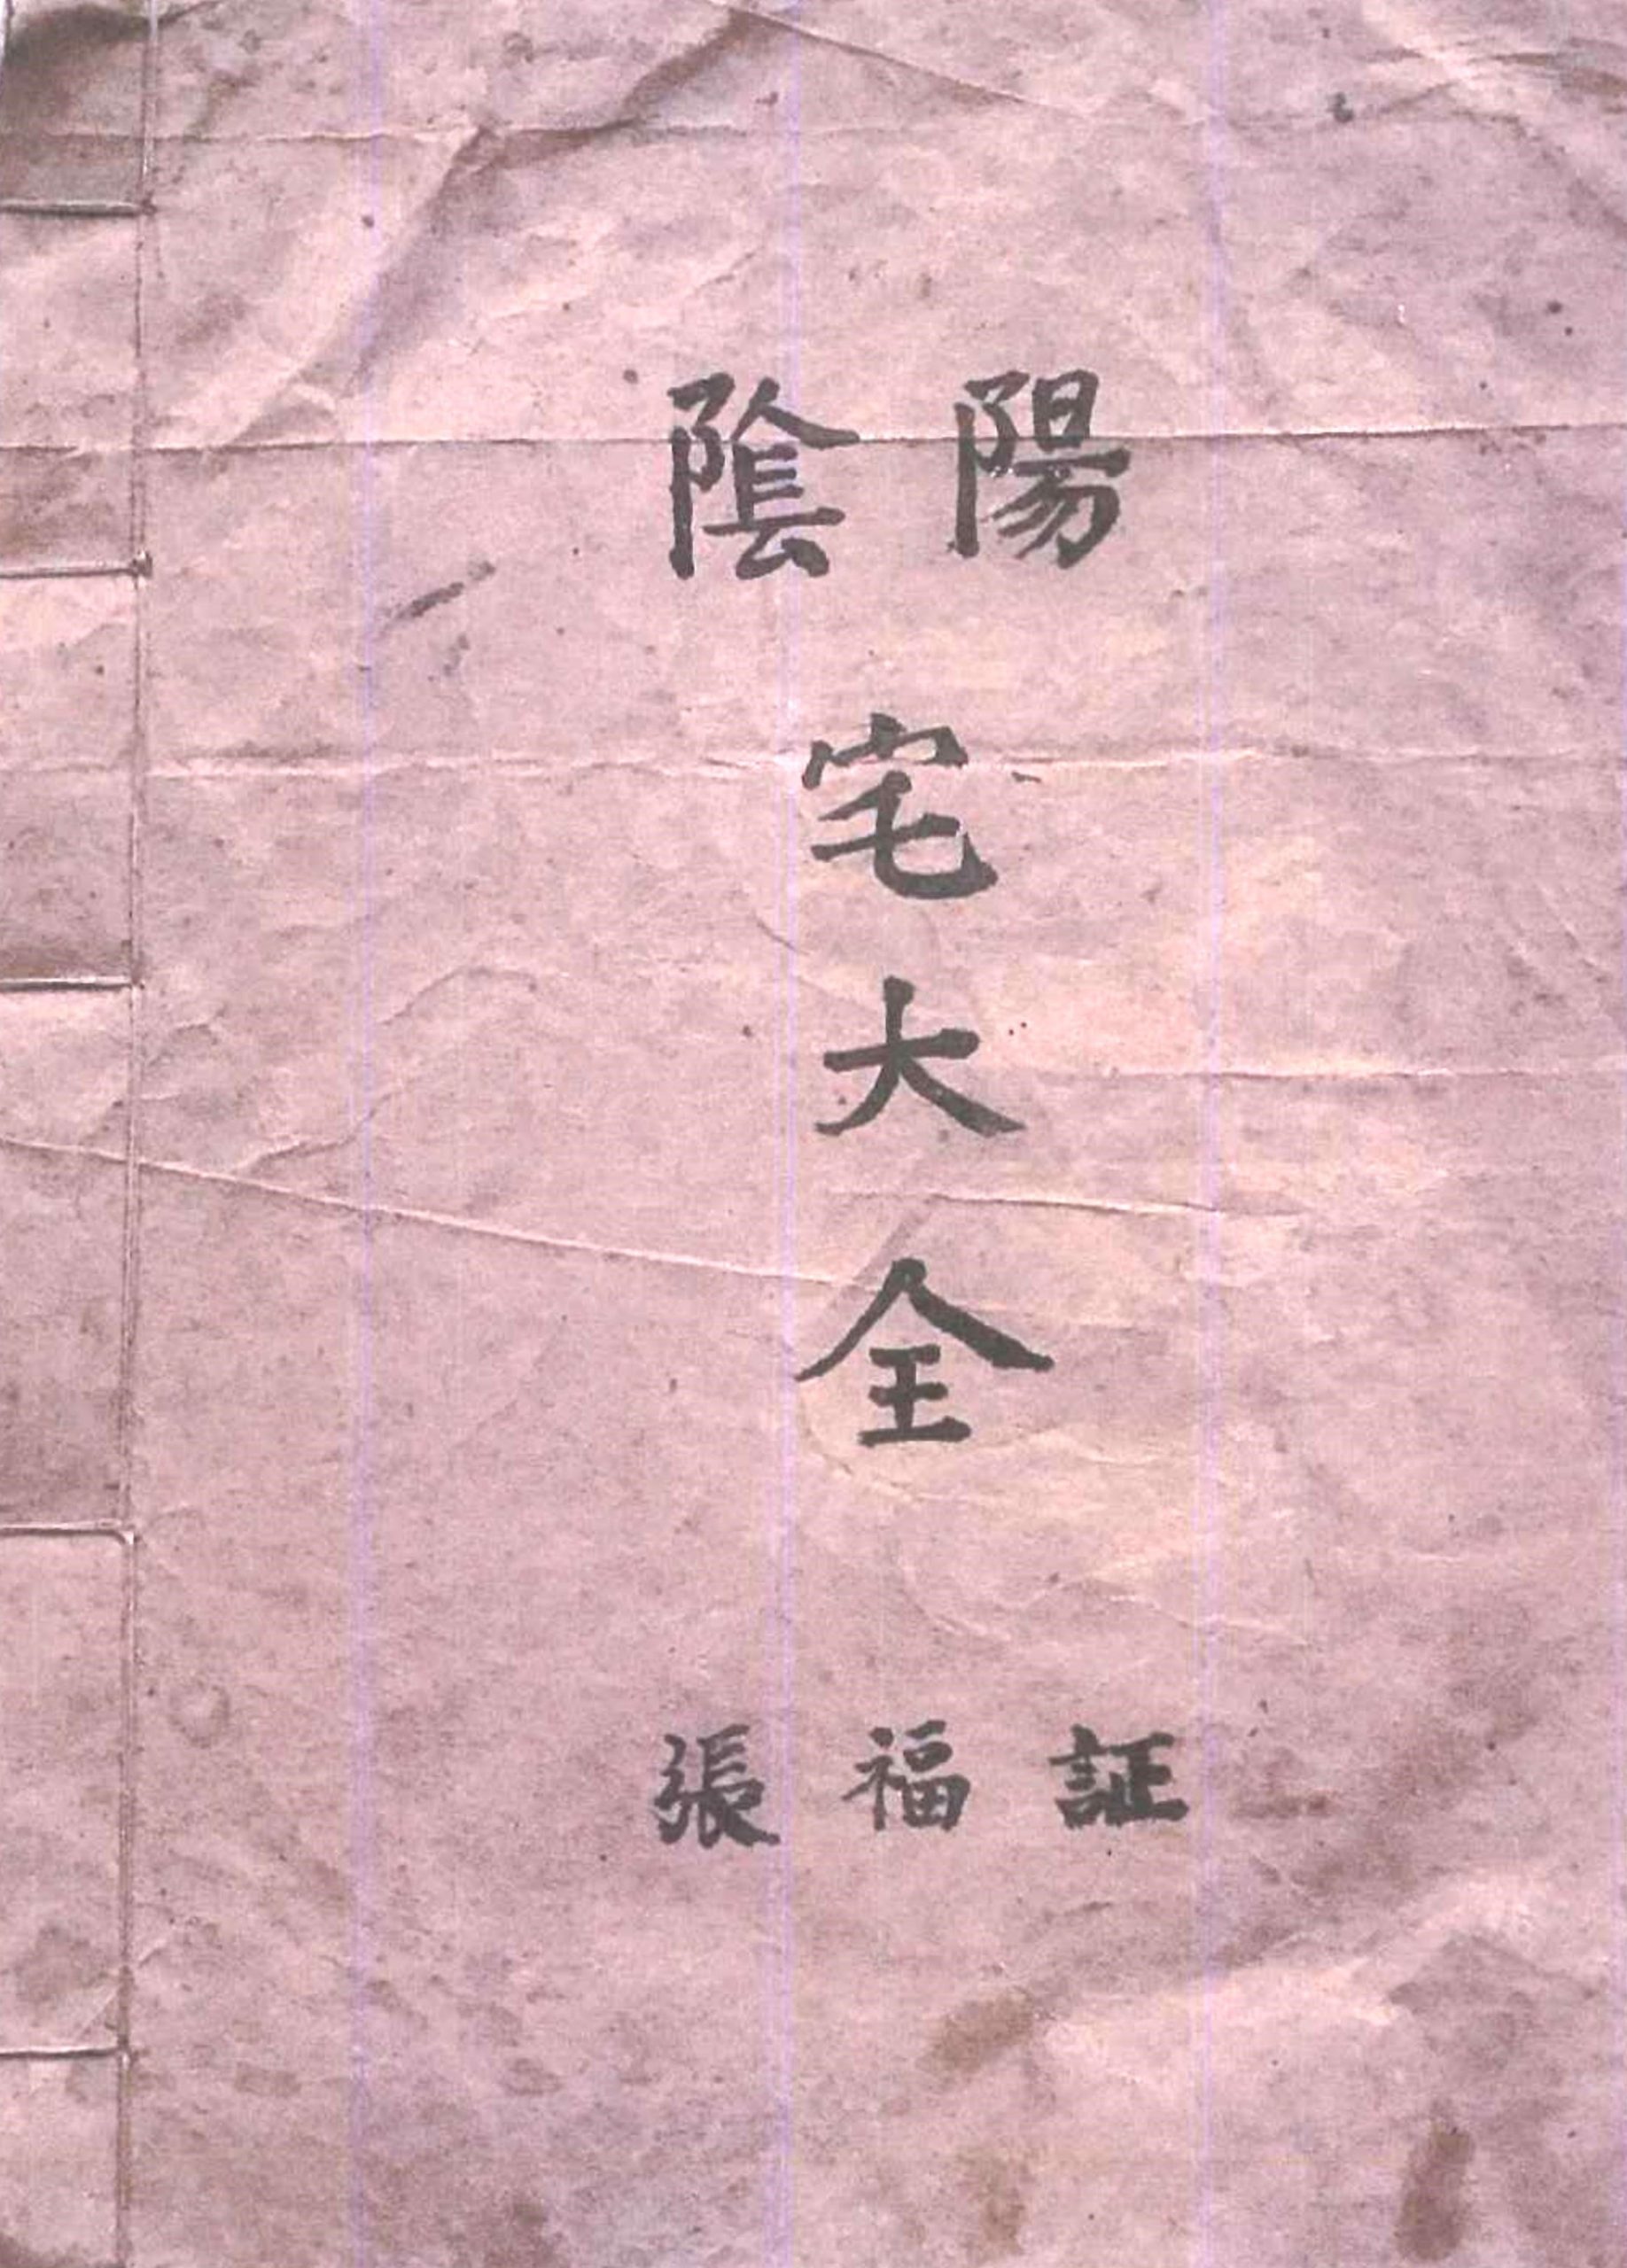 隂陽
宅大全
張福証